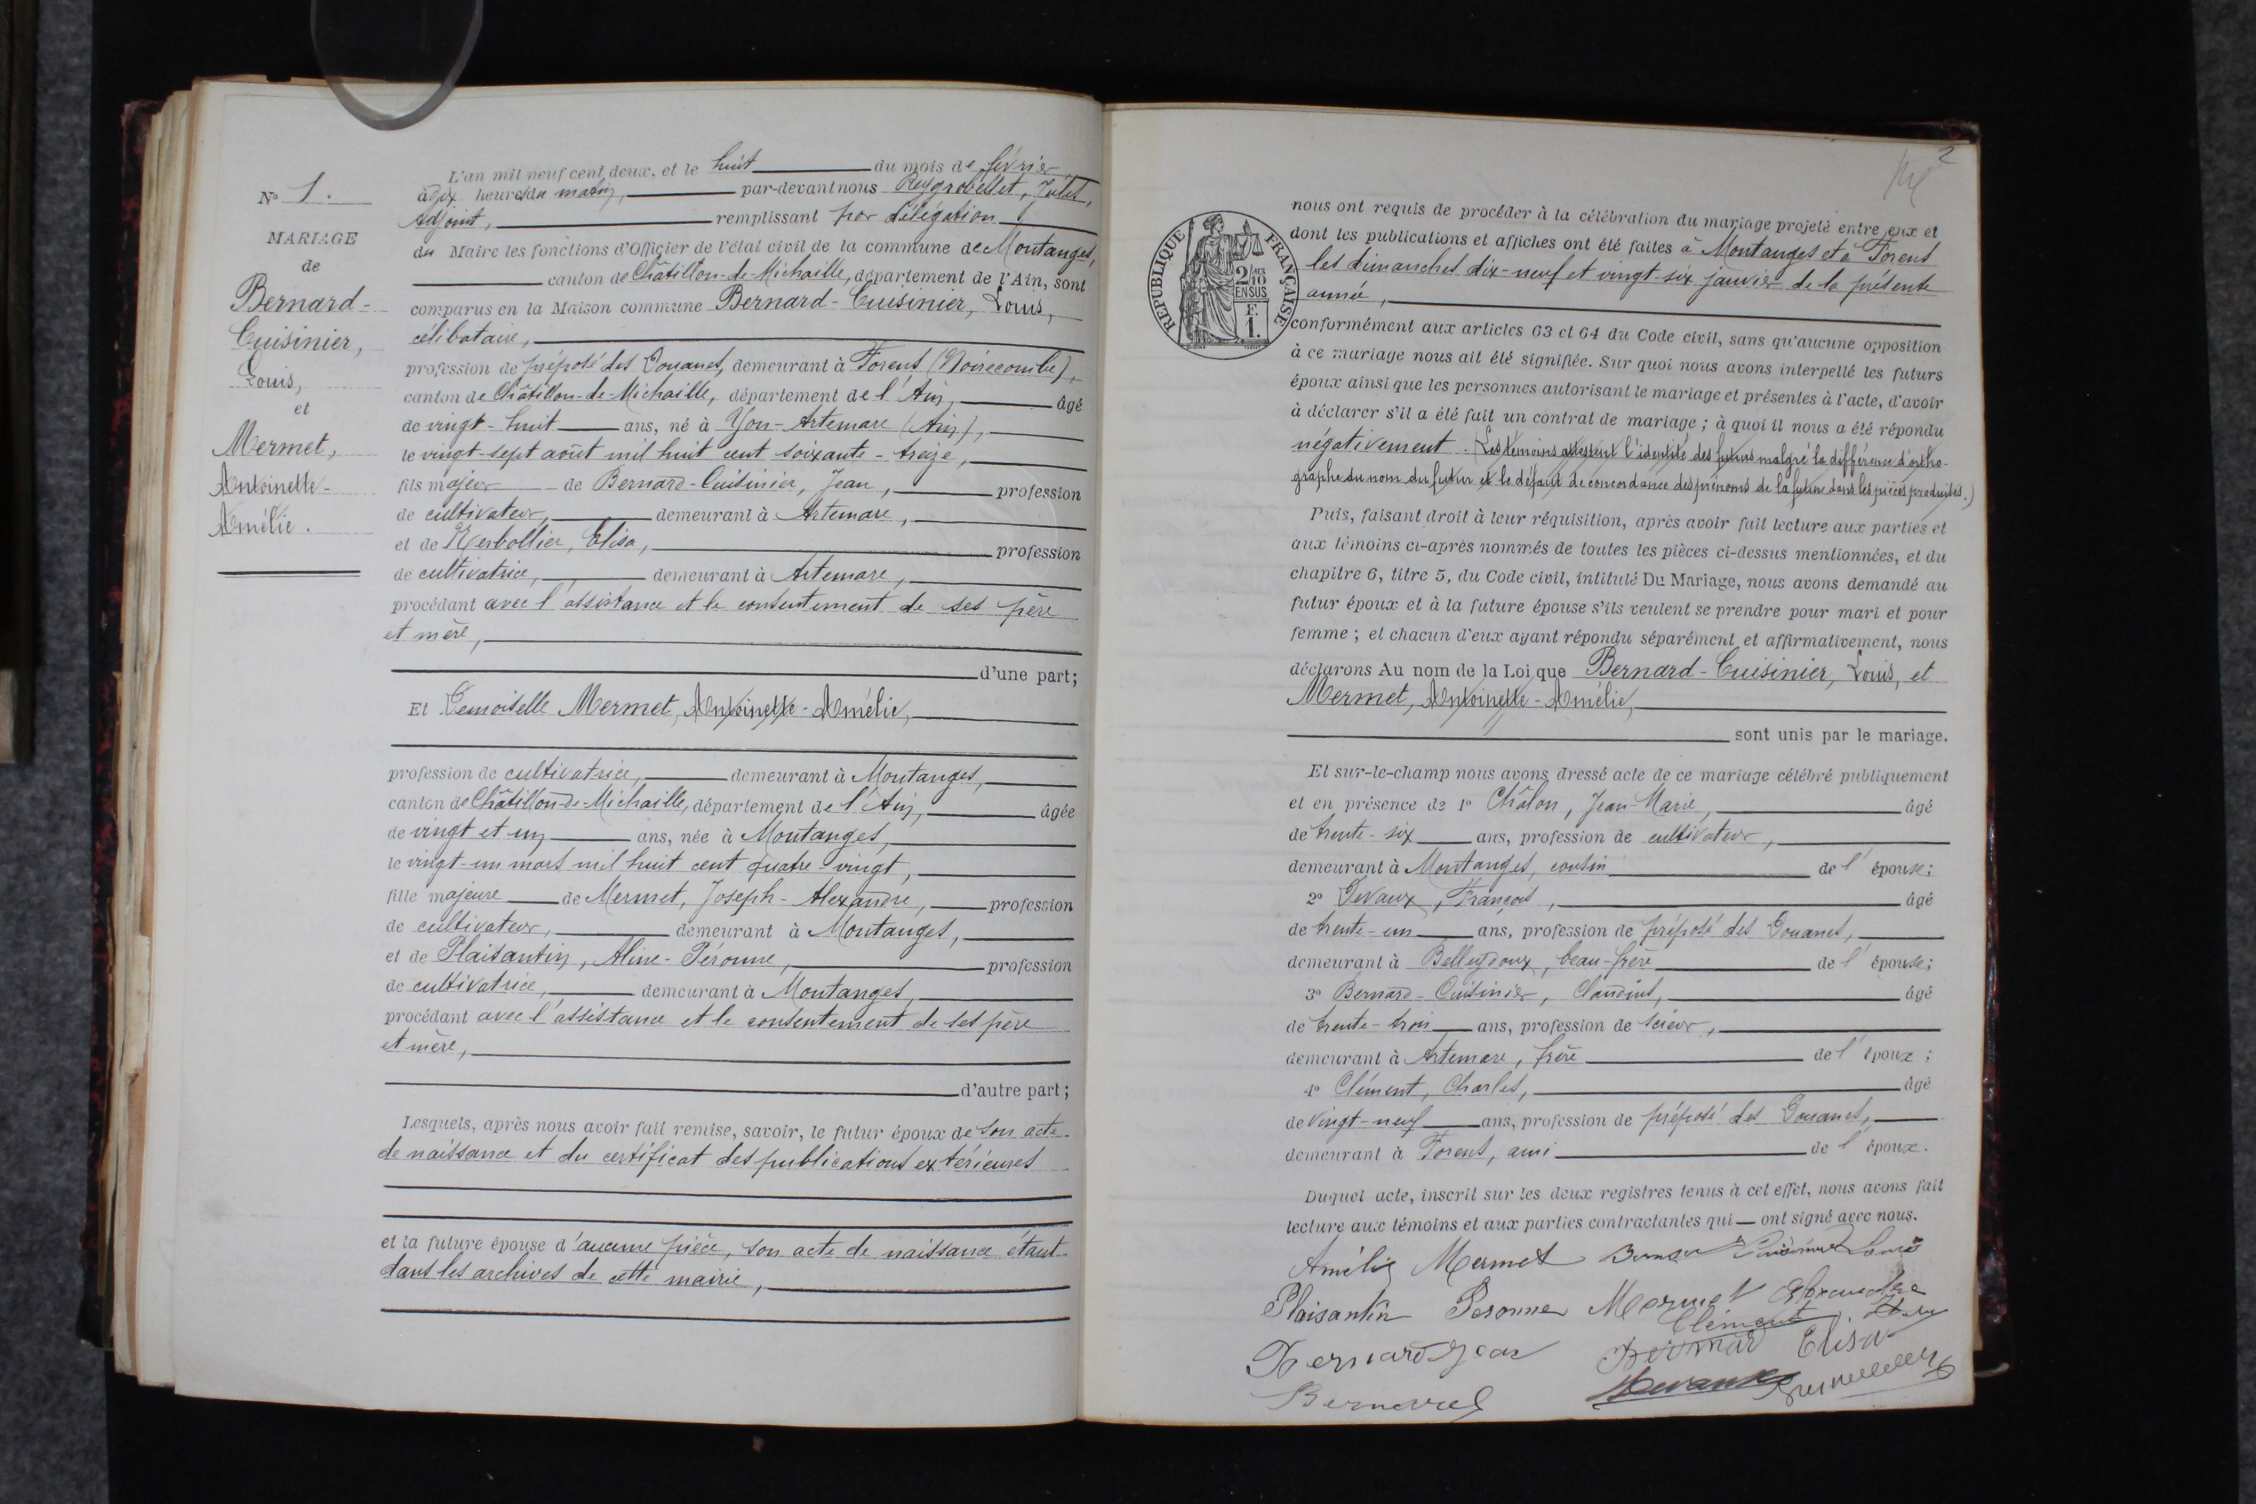 N° 1.
MARIAGE
de
Bernard-
Cuisinier,
Louis,
et
Mermet,
Antoinette-
Amélie.
L'an mil neuf cent deux, et le huit du mois de février
à dix heures du matin, par-devant nous Reygrobellet, Jules,
Adjoint, remplissant par délégation
du Maire les fonctions d'Officier de l'état civil de la commune de Montanges,
canton de Châtillon-de-Michaille, département de l'Ain, sont
comparus en la Maison commune Bernard-Cuisinier, Louis,
célibataire,
profession de préposé des Douanes, demeurant à Forens (Noirecombe),
canton de Châtillon-de-Michaille, département de l'Ain, âgé
de vingt-huit ans, né à Yon-Artemare (Ain),
le vingt-sept août mil huit cent soixante-treize,
fils majeur de Bernard-Cuisinier, Jean, profession
de cultivateur, demeurant à Artemare,
et de Elisa, profession
de cultivatrice, demeurant à Artemare,
procédant avec l'assistance et le consentement de ses père
et mère,
d'une part;
Et Demoiselle Mermet, Antoinette-Amélie,
profession de cultivatrice, demeurant à Montanges,
canton de Châtillon-de-Michaille, département de l'Ain, âgée
de vingt et un ans, née à Montanges,
le vingt-un mars mil huit cent quatre-vingt,
fille majeure de Mermet, Joseph-Alexandre, profession
de cultivateur, demeurant à Montanges,
et de Plaisantin, Aline-Péronne, profession
de cultivatrice, demeurant à Montanges,
procédant avec l'assistance et le consentement de ses père
et mère,
d'autre part;
Lesquels, après nous avoir fait remise, savoir, le futur époux de son acte
de naissance et du certificat des publications extérieures
et la future épouse d'aucune pièce, son acte de naissance étant
dans les archives de cette mairie,
2
RÉPUBLIQUE FRANÇAISE
2/10
EN SUS
F.
1.
nous ont requis de procéder à la célébration du mariage projeté entre eux et
dont les publications et affiches ont été faites à Montanges et à Forens
les dimanches dix-neuf et vingt-six janvier de la présente
année,
conformément aux articles 63 et 64 du Code civil, sans qu'aucune opposition
à ce mariage nous ait été signifiée. Sur quoi nous avons interpellé les futurs
époux ainsi que les personnes autorisant le mariage et présentes à l'acte, d'avoir
à déclarer s'il a été fait un contrat de mariage ; à quoi il nous a été répondu
négativement. (Les témoins attestent l'identité des futurs malgré la différence d'ortho-
graphe du nom du futur et le défaut de concordance des prénoms de la future dans les pièces produites.)
Puis, faisant droit à leur réquisition, après avoir fait lecture aux parties et
aux témoins ci-après nommés de toutes les pièces ci-dessus mentionnées, et du
chapitre 6, titre 5, du Code civil, intitulé Du Mariage, nous avons demandé au
futur époux et à la future épouse s'ils veulent se prendre pour mari et pour
femme ; et chacun d'eux ayant répondu séparément et affirmativement, nous
déclarons Au nom de la Loi que Bernard-Cuisinier, Louis, et
Mermet, Antoinette-Amélie,
sont unis par le mariage.
Et sur-le-champ nous avons dressé acte de ce mariage célébré publiquement
et en présence de 1° Châlon, Jean-Marie, âgé
de trente-six ans, profession de cultivateur,
demeurant à Montanges, cousin de l'épouse;
2° Devaux, François, âgé
de trente-un ans, profession de préposé des Douanes,
demeurant à Belleydoux, beau-frère de l'épouse;
3° Bernard-Cuisinier, Claudius, âgé
de trente-trois ans, profession de scieur,
demeurant à Artemare, frère de l'époux;
4° Clément, Charles, âgé
de vingt-neuf ans, profession de préposé des Douanes,
demeurant à Forens, ami de l'époux.
Duquel acte, inscrit sur les deux registres tenus à cet effet, nous avons fait
lecture aux témoins et aux parties contractantes qui ont signé avec nous.
Amélie Mermet Bernard Cuisinier Louis
Plaisantin Peronne Mermet Alexandre
Clément
Bernard Jean Bernard Elisa
Devaux